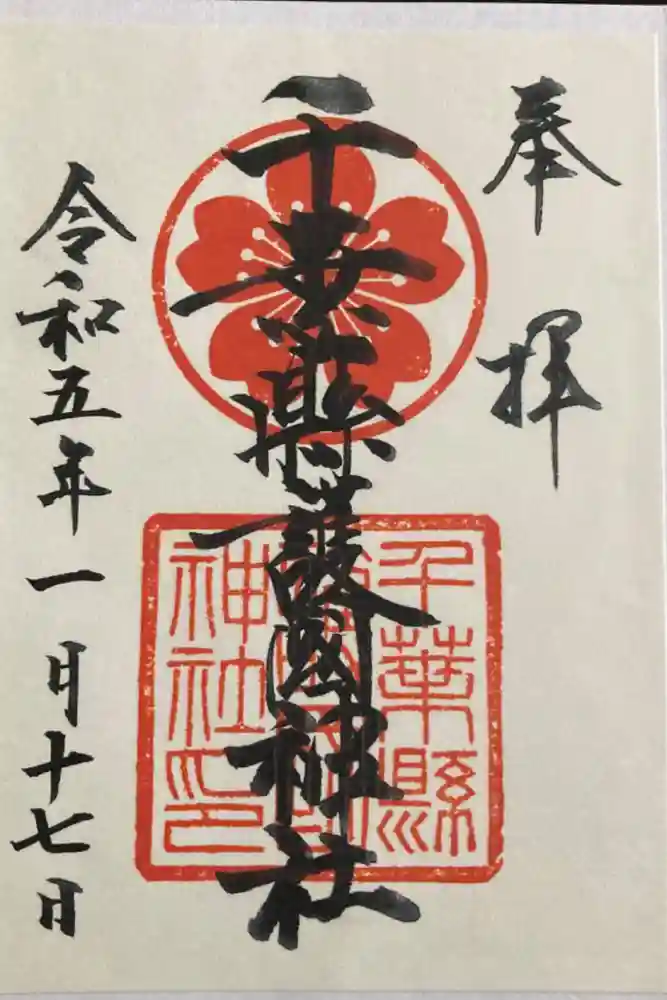 奉拝
千葉縣護國神社
千葉縣
神社印
令和五年一月十七日